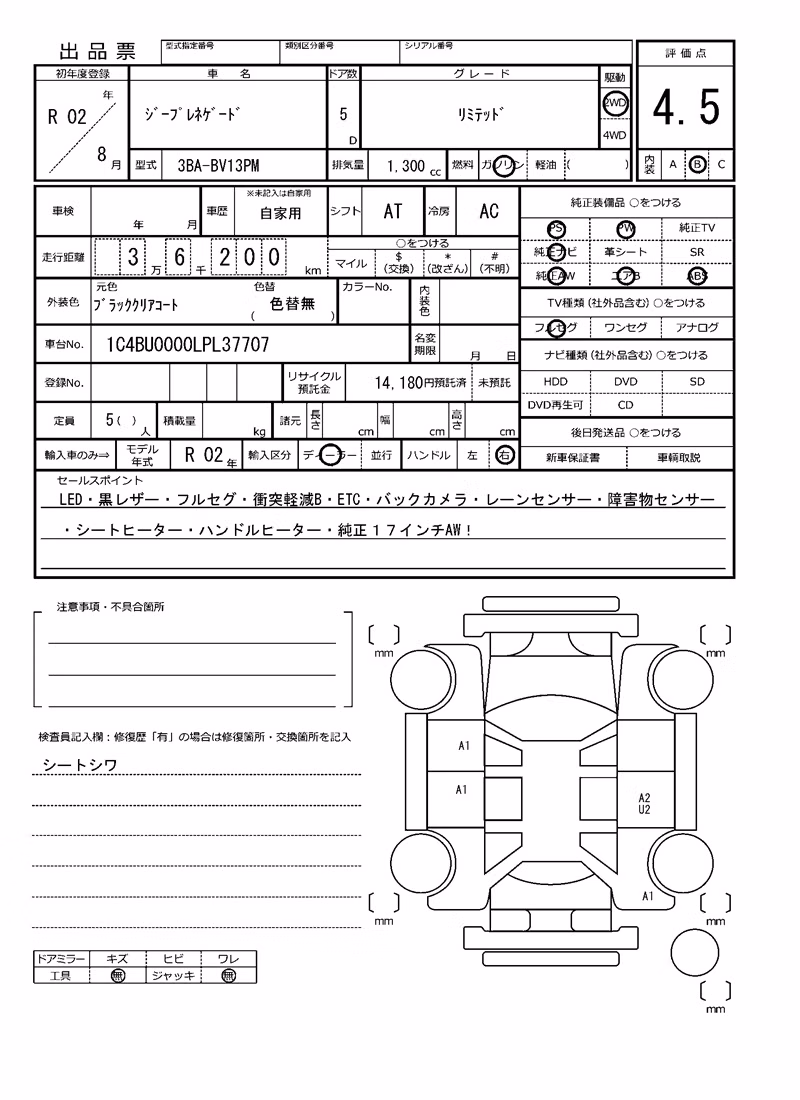 出品票
型式指定番号 類別区分番号 シリアル番号
評価点
初年度登録 車名 ドア数 グレード 駆動
R 02 年 ジープレネゲード 5 D リミテッド 2WD 4.5
8 月 4WD
型式 3BA-BV13PM 排気量 1,300 cc 燃料 ガソリン 軽油 ( ) 内装 A B C
車検 年 月 車歴 ※未記入は自家用 自家用 シフト AT 冷房 AC
純正装備品 ○をつける
PS PW 純正TV
走行距離 3 万 6 千 2 0 0 km ○をつける
マイル $(交換) *(改ざん) #(不明)
純正ナビ 革シート SR
純正AW エアB ABS
外装色 元色 ブラッククリアコート 色替 ( 色替無 ) カラーNo. 内装色
TV種類(社外品含む)○をつける
フルセグ ワンセグ アナログ
車台No. 1C4BU0000LPL37707 名変期限 月 日
ナビ種類(社外品含む)○をつける
登録No. リサイクル預託金 14,180円預託済 未預託
HDD DVD SD
DVD再生可 CD
定員 5( ) 人 積載量 kg 諸元 長さ cm 幅 cm 高さ cm
後日発送品 ○をつける
輸入車のみ⇒ モデル年式 R 02 年 輸入区分 ディーラー 並行 ハンドル 左 右
新車保証書 車輌取説
セールスポイント
LED・黒レザー・フルセグ・衝突軽減B・ETC・バックカメラ・レーンセンサー・障害物センサー
・シートヒーター・ハンドルヒーター・純正１７インチAW！
注意事項・不具合箇所
mm mm
検査員記入欄：修復歴「有」の場合は修復箇所・交換箇所を記入
シートシワ
A1
A1
A2
U2
A1
mm mm
ドアミラー キズ ヒビ ワレ
工具 無 ジャッキ 無
mm